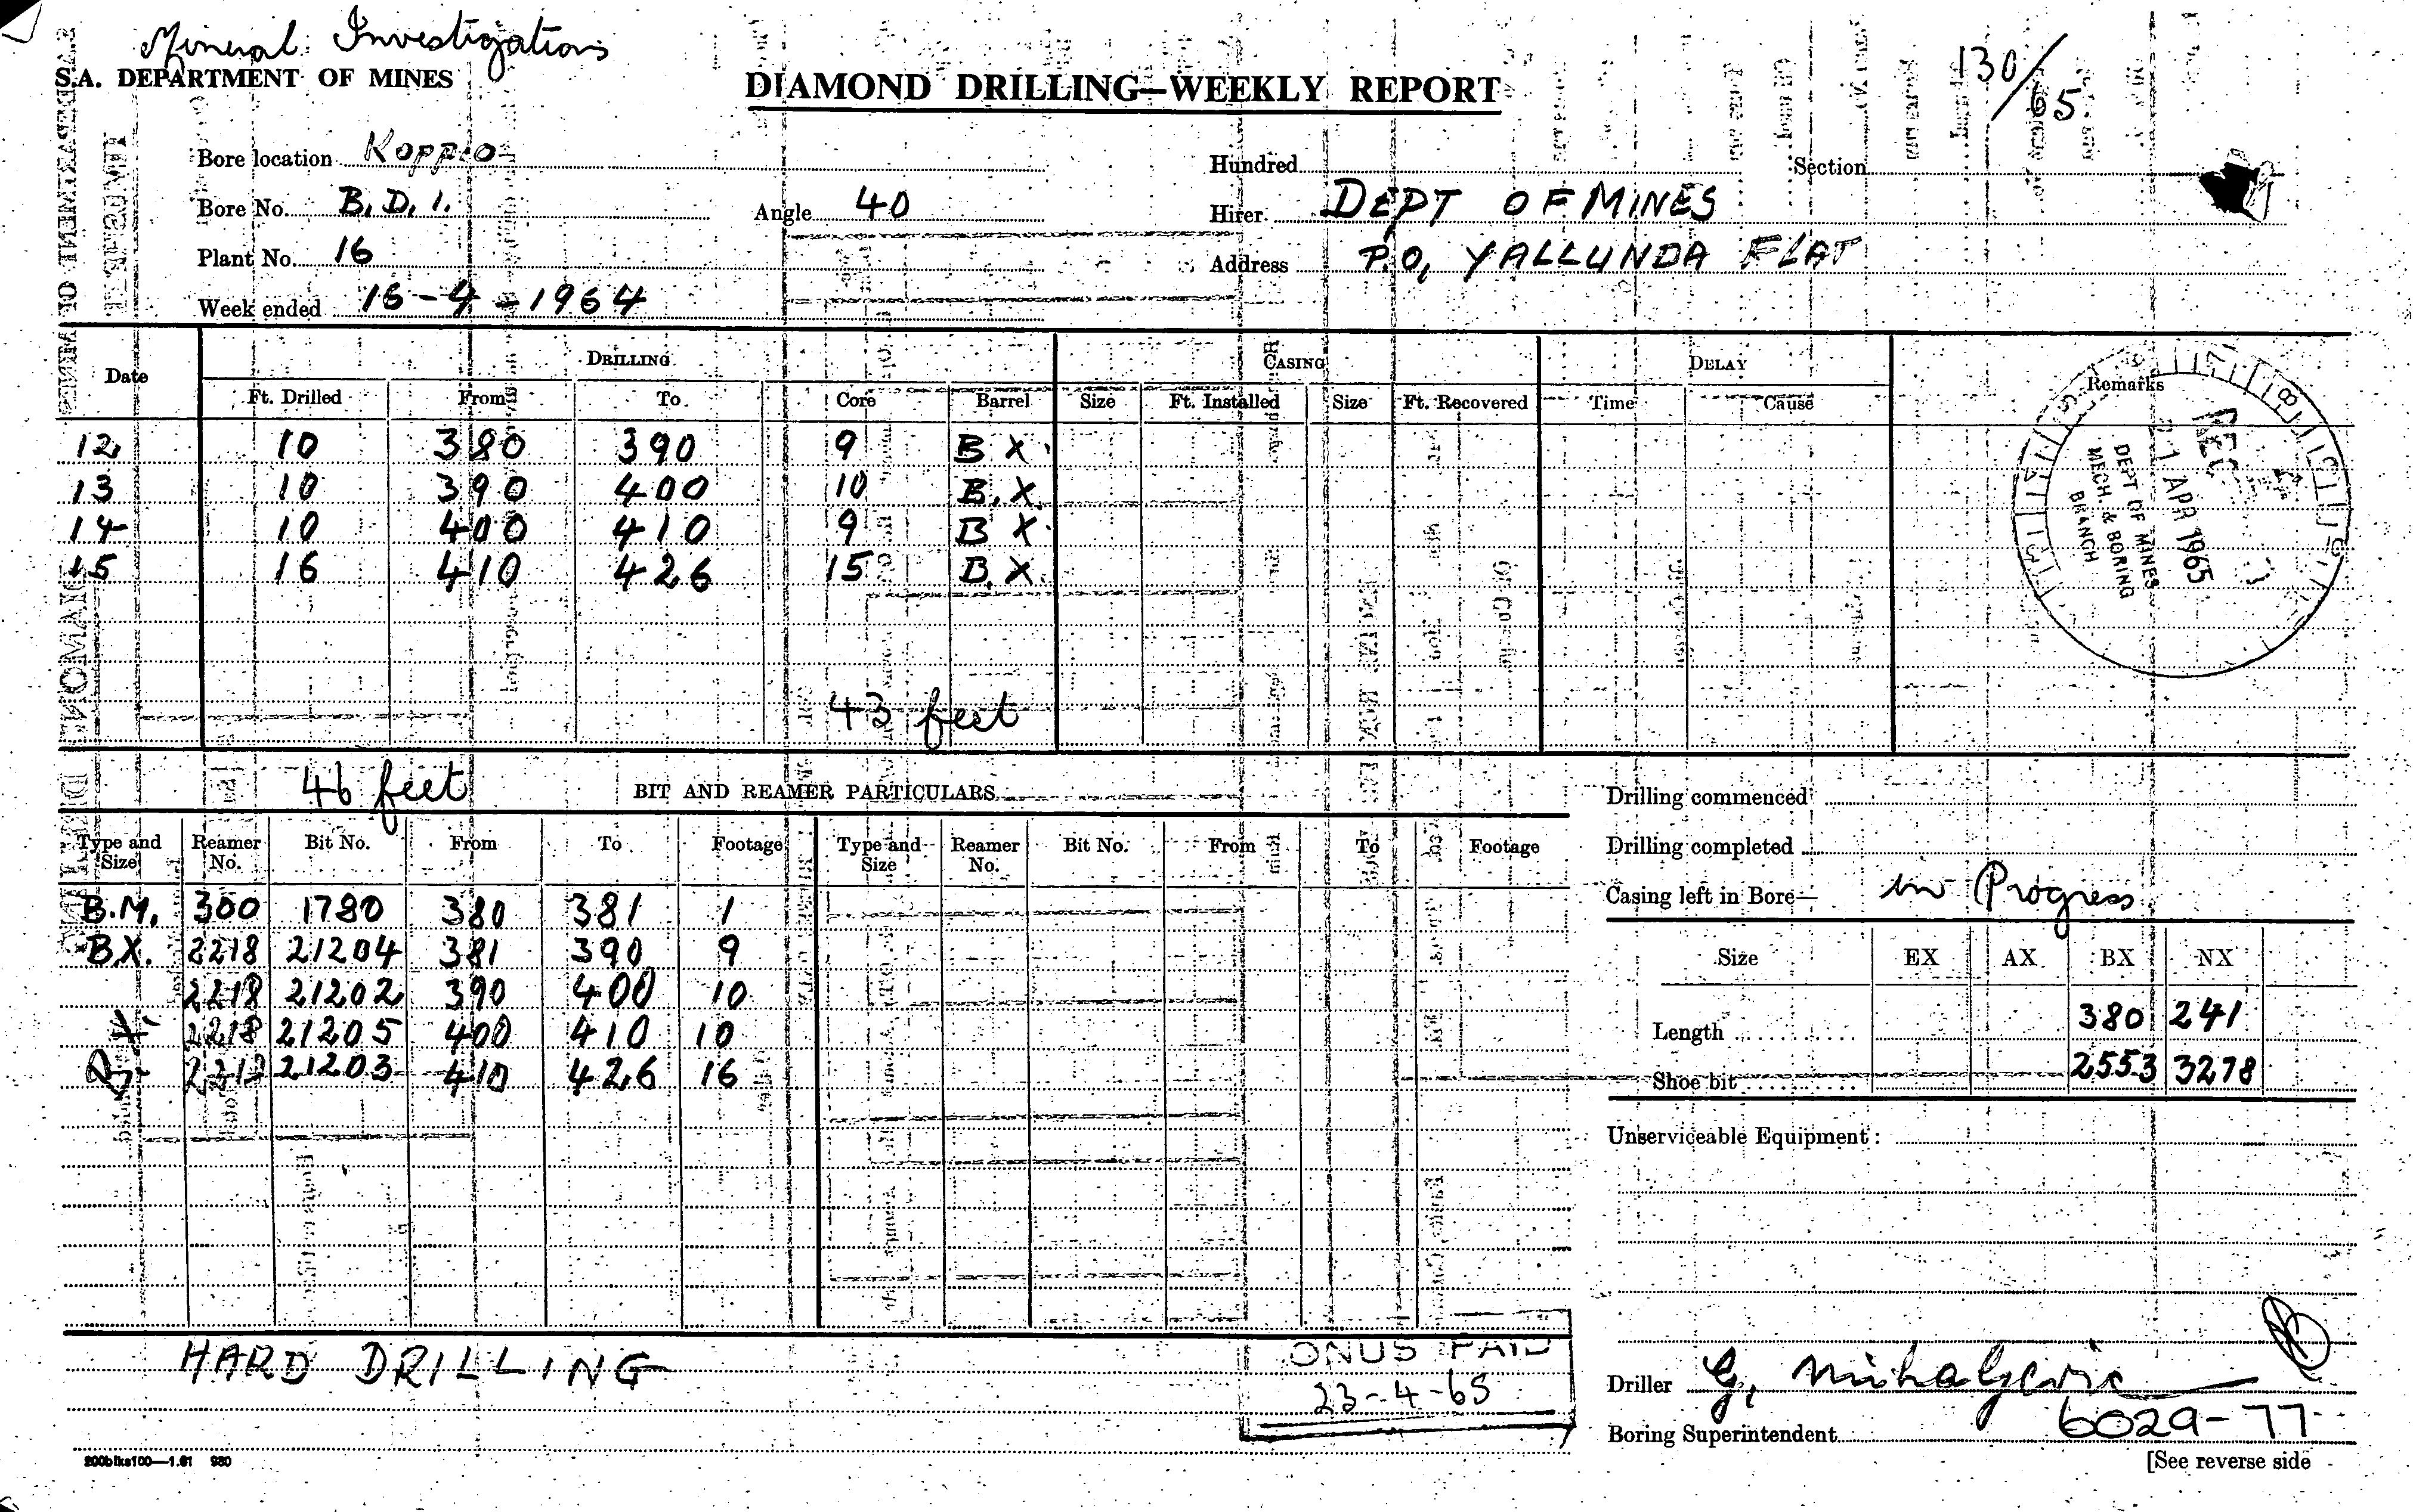 Mineral Investigations
S.A. DEPARTMENT OF MINES
DIAMOND DRILLING—WEEKLY REPORT
130/65
Bore location Koppio
Hundred
Section
Bore No. B.D.1.
Angle 40
Hirer DEPT OF MINES
Plant No. 16
Address P.O, YALLUNDA FLAT
Week ended 16-4-1964
Date
DRILLING
CASING
DELAY
Remarks
Ft. Drilled From To Core Barrel Size Ft. Installed Size Ft. Recovered Time Cause
12 10 380 390 9 B X
13 10 390 400 10 B.X
14 10 400 410 9 B X
15 16 410 426 15 B.X
REC
21 APR 1965
DEPT OF MINES
MECH. & BORING
BRANCH
43 feet
46 feet
BIT AND REAMER PARTICULARS
Type and Size Reamer No. Bit No. From To Footage Type and Size Reamer No. Bit No. From To Footage
B.M. 300 1780 380 381 1
BX. 2218 21204 381 390 9
2218 21202 390 400 10
2218 21205 400 410 10
2218 21203 410 426 16
Drilling commenced
Drilling completed
Casing left in Bore— in Progress
Size EX AX BX NX
Length 380 241
Shoe bit 2553 3278
Unserviceable Equipment :
HARD DRILLING
ONUS PAID
23-4-65
Driller G. Mihaljevic
Boring Superintendent
6029-77
200blks100—1.61 980
[See reverse side